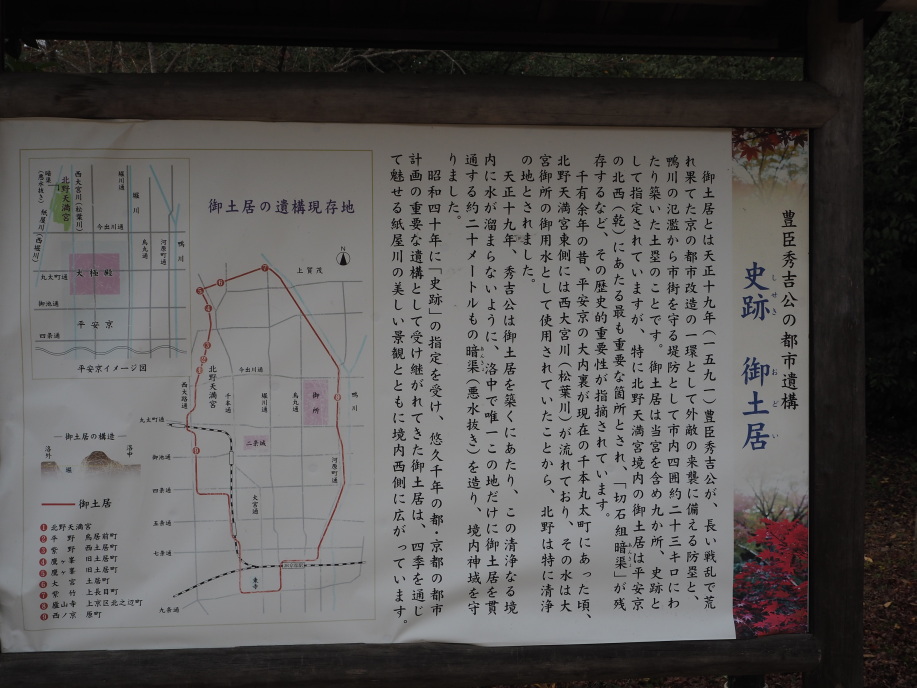 豊臣秀吉公の都市遺構
史跡 御土居
しせき おどい
御土居とは天正十九年(一五九一)豊臣秀吉公が、長い戦乱で荒
れ果てた京の都市改造の一環として外敵の来襲に備える防塁と、
鴨川の氾濫から市街を守る堤防として市内四囲約二十三キロにわ
たり築いた土塁のことです。御土居は当宮を含め九か所、史跡と
して指定されていますが、特に北野天満宮境内の御土居は平安京
の北西(乾)にあたる最も重要な箇所とされ、「切石組暗渠」が残
存するなど、その歴史的重要性が指摘されています。
千有余年の昔、平安京の大内裏が現在の千本丸太町にあった頃、
北野天満宮東側には西大宮川(松葉川)が流れており、その水は大
宮御所の御用水として使用されていたことから、北野は特に清浄
の地とされました。
天正十九年、秀吉公は御土居を築くにあたり、この清浄なる境
内に水が溜まらないように、洛中で唯一この地だけに御土居を貫
通する約二十メートルもの暗渠(悪水抜き)を造り、境内神域を守
りました。
昭和四十年に「史跡」の指定を受け、悠久千年の都・京都の都市
計画の重要な遺構として受け継がれてきた御土居は、四季を通じ
て魅せる紙屋川の美しい景観とともに境内西側に広がっています。
御土居の遺構現存地
N
上賀茂
北野天満宮
今出川通
西大路通
千本通
堀川通
烏丸通
御所
鴨川
河原町通
丸太町通
二条城
御池通
四条通
大宮通
五条通
七条通
東寺
九条通
暗渠(悪水抜き)
紙屋川(西堀川)
北野天満宮
西大宮川(松葉川)
堀川通
堀川
今出川通
烏丸通
河原町通
鴨川
丸太町通
大極殿
御池通
平安京
四条通
平安京イメージ図
御土居の構造
洛外
堀
洛中
御土居
❶北野天満宮
❷平野 鳥居前町
❸紫野 西土居町
❹鷹ヶ峯 旧土居町
❺鷹ヶ峯 旧土居町
❻大宮 土居町
❼紫竹 上長目町
❽廬山寺 上京区北之辺町
❾西ノ京 原町